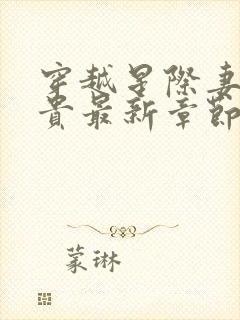 穿越星際妻
貴最新章節
蒙琳